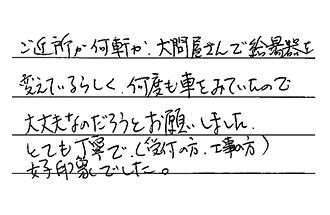 ご近所が何軒か、大問屋さんで給湯器を
変えているらしく、何度も車をみていたので
大丈夫なのだろうとお願いしました。
とても丁寧で、（受付の方、工事の方）
好印象でした。